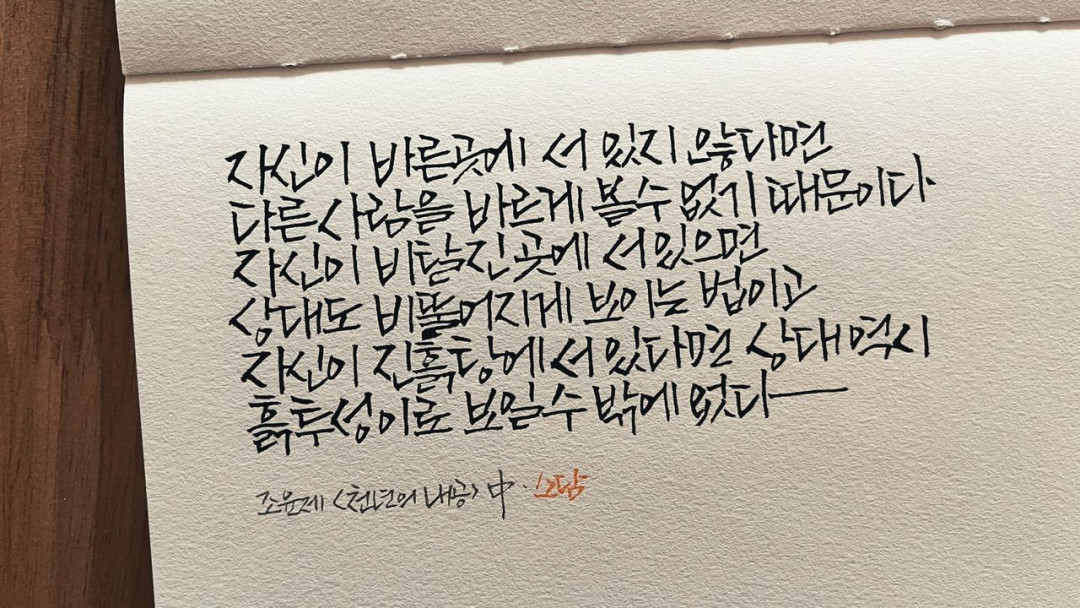 자신이 바른곳에 서 있지 않다면
다른 사람을 바르게 볼수 없기 때문이다
자신이 비탈진 곳에 서있으면
상대도 비뚤어지게 보이는 법이고
자신이 진흙탕에 서 있다면 상대 역시
흙투성이로 보일수 밖에 없다
조윤제 <천년의 내공> 中 · 소담